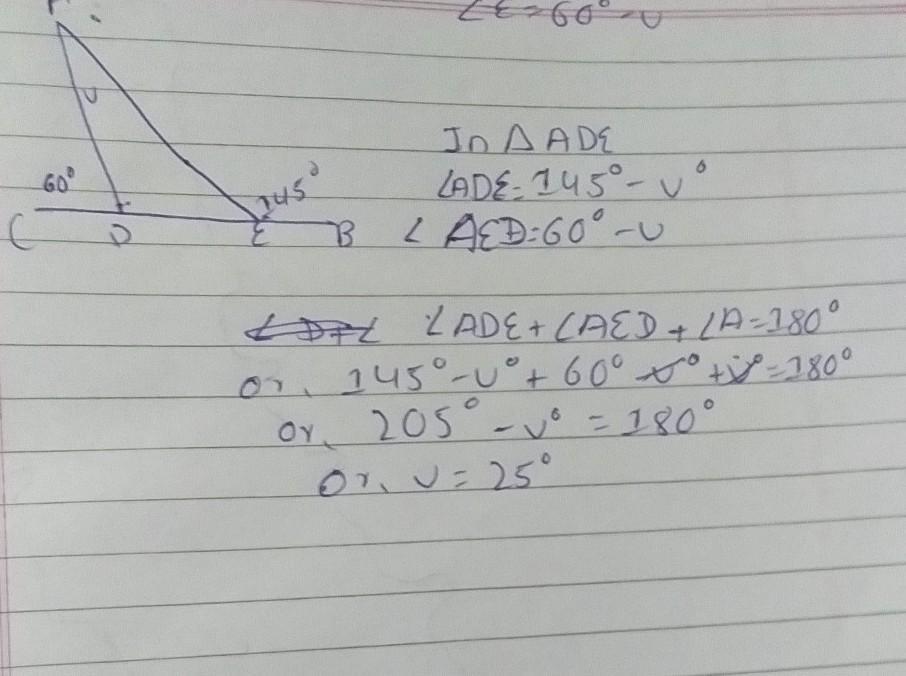 ∠E=60°-υ
υ
60°
145°
C D E B
In △ ADE
∠ADE=145°-υ°
∠ AED=60°-υ
∠ADE+∠AED+∠A=180°
or, 145°-υ°+60°-υ°+υ°=180°
or, 205°-υ°=180°
or, υ=25°